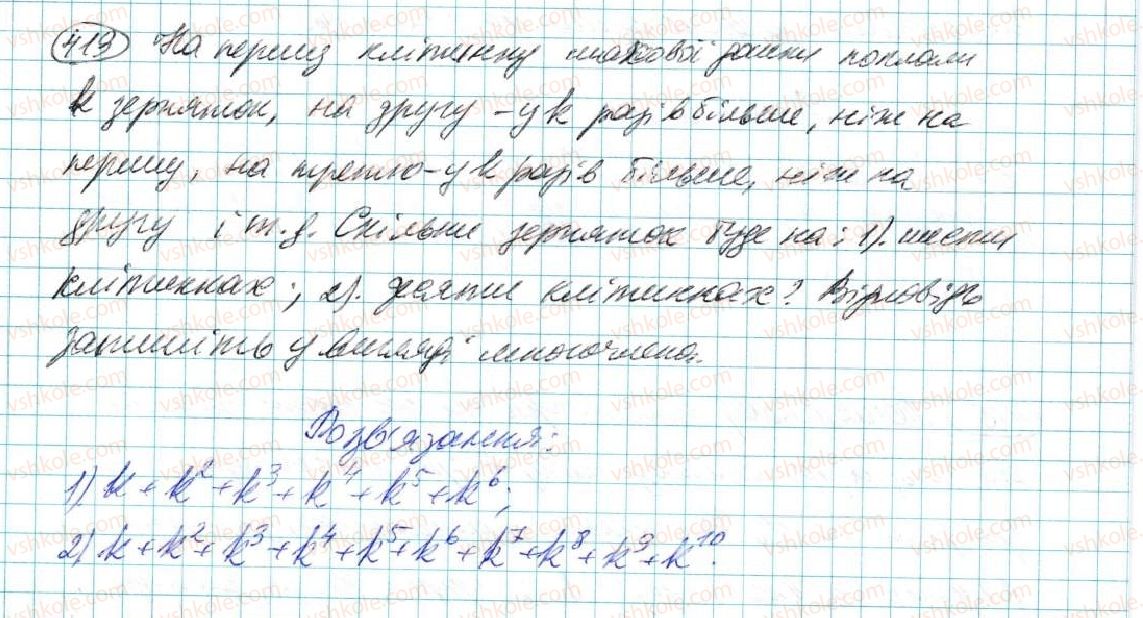 413 На першу клітинку шахової дошки поклали
k зерняток, на другу – у k разів більше, ніж на
першу, на третю – у k разів більше, ніж на
другу і т.д. Скільки зерняток буде на: 1). шести
клітинках; 2). десяти клітинках? Відповідь
запишіть у вигляді многочлена.
Розв'язання:
1) k + k² + k³ + k⁴ + k⁵ + k⁶;
2) k + k² + k³ + k⁴ + k⁵ + k⁶ + k⁷ + k⁸ + k⁹ + k¹⁰.